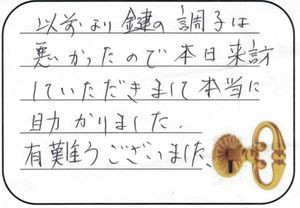 以前より鍵の調子は
悪かったので本日来訪
していただきまして本当に
助かりました.
有難うございました、